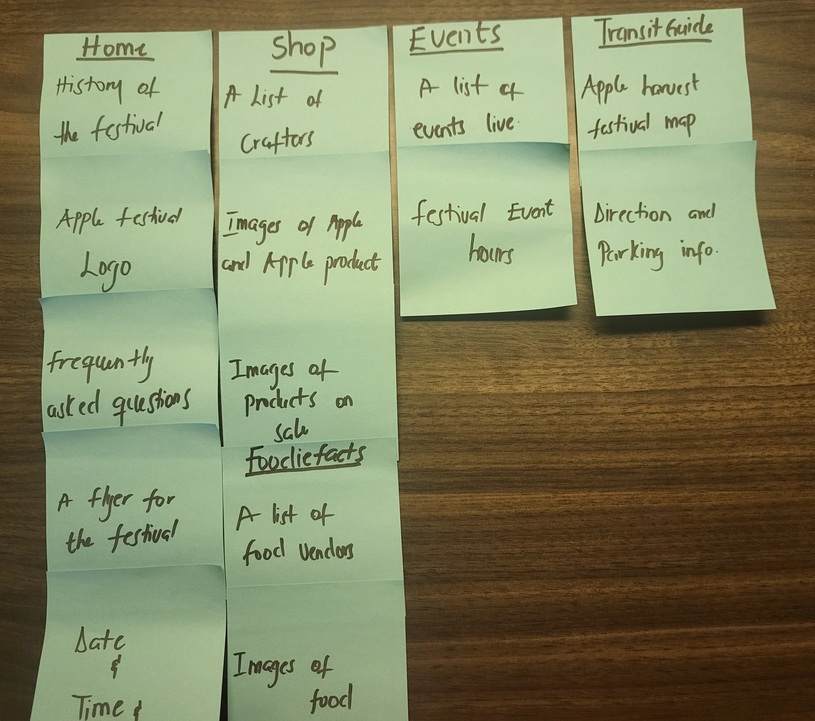 Home
History of
the festival
Apple festival
Logo
Frequently
asked questions
A flyer for
the festival
Date
&
Time &
Shop
A List of
Crafters
Images of Apple
and Apple product
Images of
products on
sale
Foodiefacts
A list of
food vendors
Images of
food
Events
A list of
events live.
festival Event
hours
Transit Guide
Apple harvest
festival map
Direction and
Parking info.